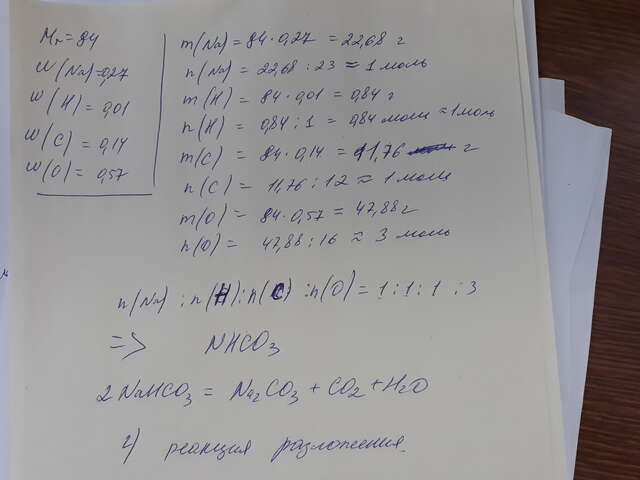 Mr = 84
w(Na) = 0,27
w(H) = 0,01
w(C) = 0,14
w(O) = 0,57
m(Na) = 84 · 0,27 = 22,68 г
n(Na) = 22,68 : 23 ≈ 1 моль
m(H) = 84 · 0,01 = 0,84 г
n(H) = 0,84 : 1 = 0,84 моль ≈ 1 моль
m(C) = 84 · 0,14 = 11,76 г
n(C) = 11,76 : 12 ≈ 1 моль
m(O) = 84 · 0,57 = 47,88 г
n(O) = 47,88 : 16 ≈ 3 моль
n(Na) : n(H) : n(C) : n(O) = 1 : 1 : 1 : 3
=> NHCO3
2 NaHCO3 = Na2CO3 + CO2 + H2O
2) реакция разложения